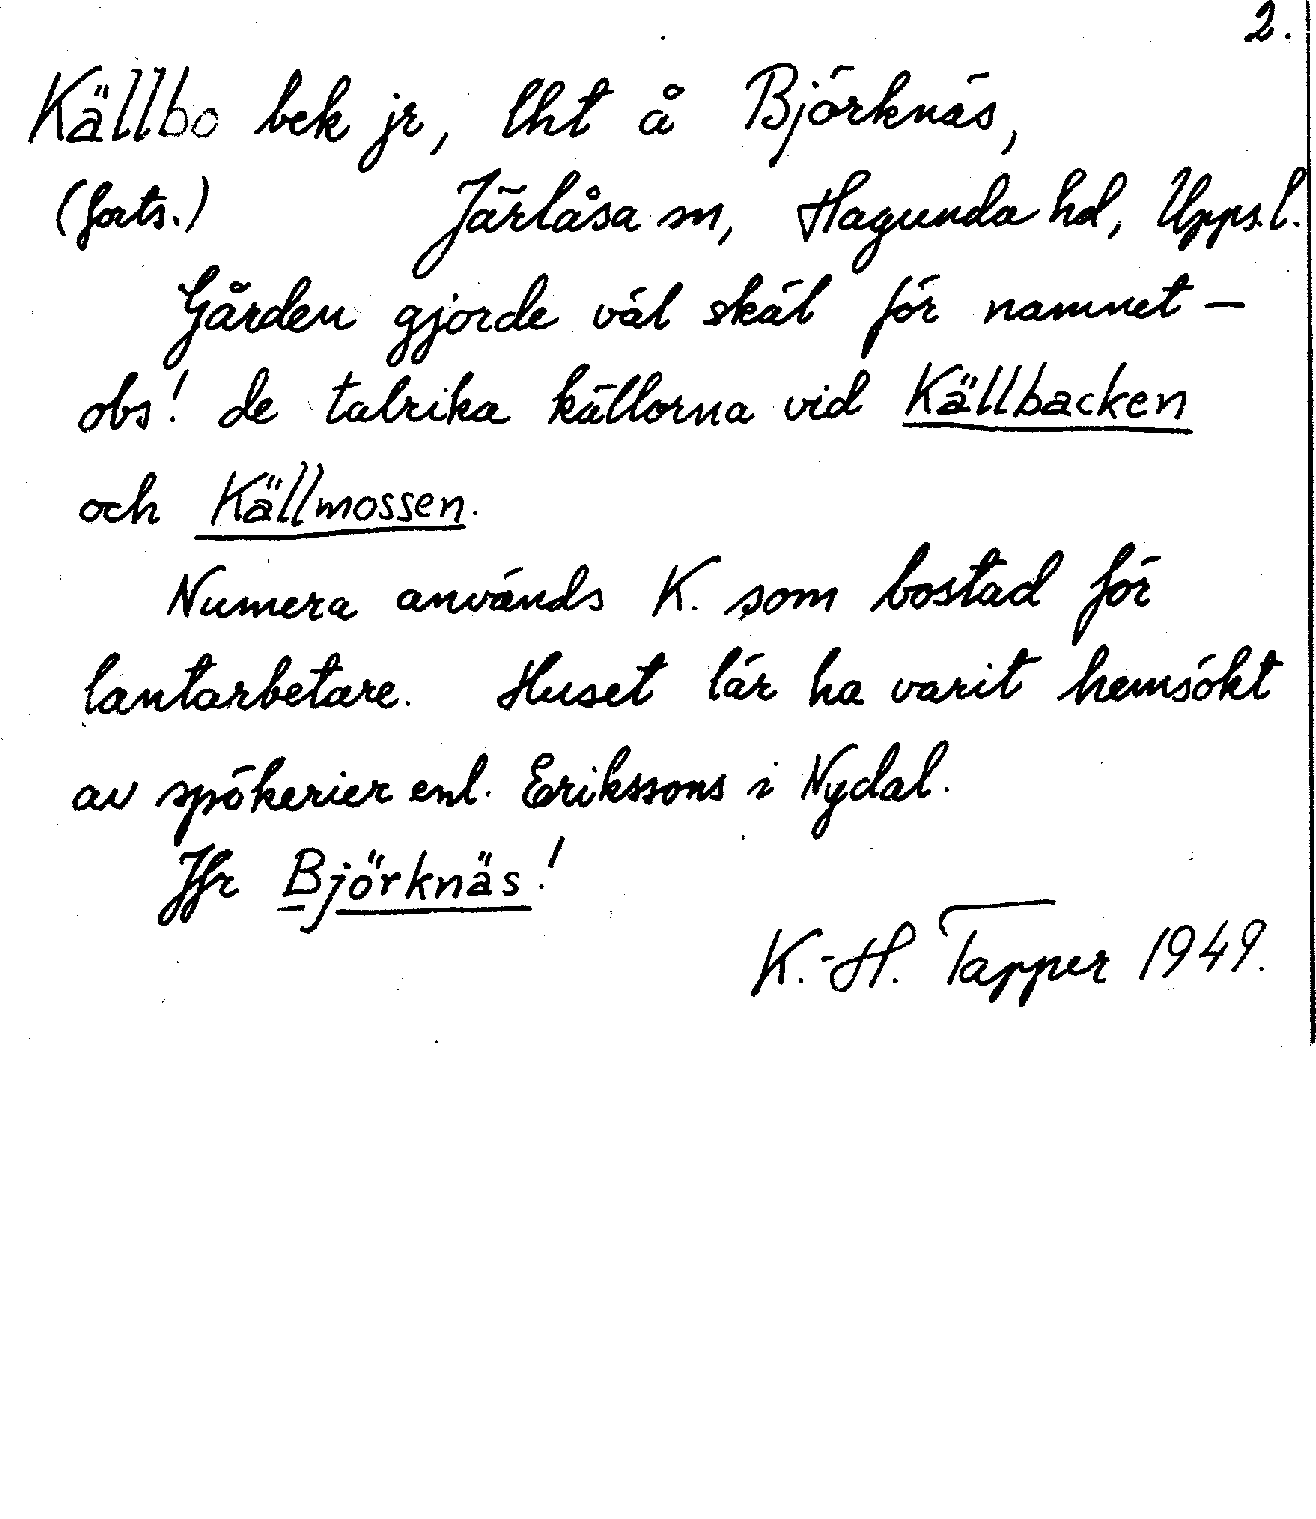 2.
Källbo bek jr, lht å Björknäs,
(forts.) Järlåsa sn, Hagunda hd, Upps.l.
Gården gjorde väl skäl för namnet –
obs! de talrika källorna vid Källbacken
och Källmossen.
Numera används K. som bostad för
lantarbetare. Huset lär ha varit hemsökt
av spökerier enl. Erikssons i Nydal.
Jfr Björknäs!
K.-H. Tapper 1949.